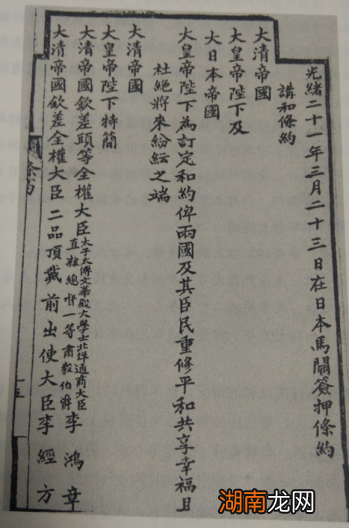 光緒二十一年三月二十三日在日本馬關簽押條約
講和條約
大清帝國
大皇帝陛下及
大日本帝國
大皇帝陛下為訂定和約俾兩國及其臣民重修平和共享幸福且
杜絕將來紛紜之端
大清帝國
大皇帝陛下特簡
大清帝國欽差頭等全權大臣太子太傅文華殿大學士北洋通商大臣直隸總督一等肅毅伯爵李鴻章
大清帝國欽差全權大臣二品頂戴前出使大臣李經方
條約
十五
湖南龙网